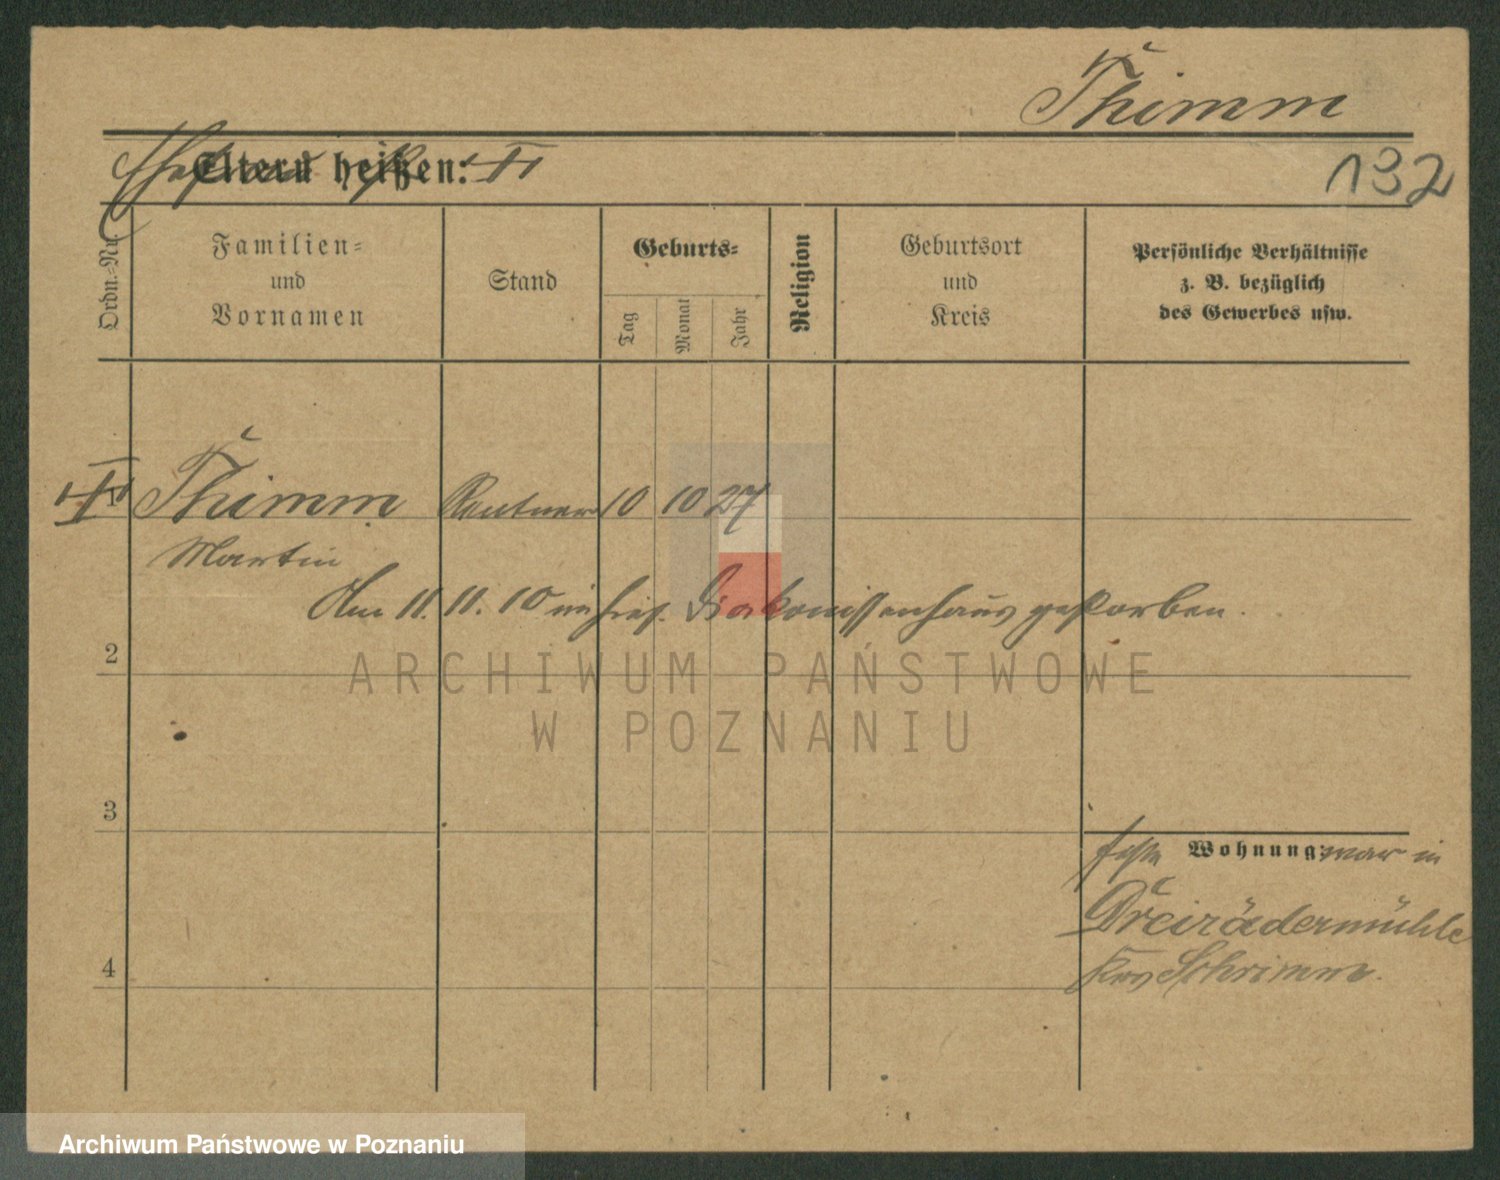 Thimm
Eltern heißen:
132
Ordn.-Nr.
Familien-
und
Vornamen
Stand
Geburts-
Tag
Monat
Jahr
Religion
Geburtsort
und
Kreis
Persönliche Verhältnisse
z. B. bezüglich
des Gewerbes usw.
Thimm Rentner 10 10 27
Martin
Am 11. 11. 10 im hies. Diakonissenhaus gestorben.
2
ARCHIWUM PAŃSTWOWE
W POZNANIU
3
Wohnung: war in
Dreirädermühle
4
Krs Schrimm.
Archiwum Państwowe w Poznaniu